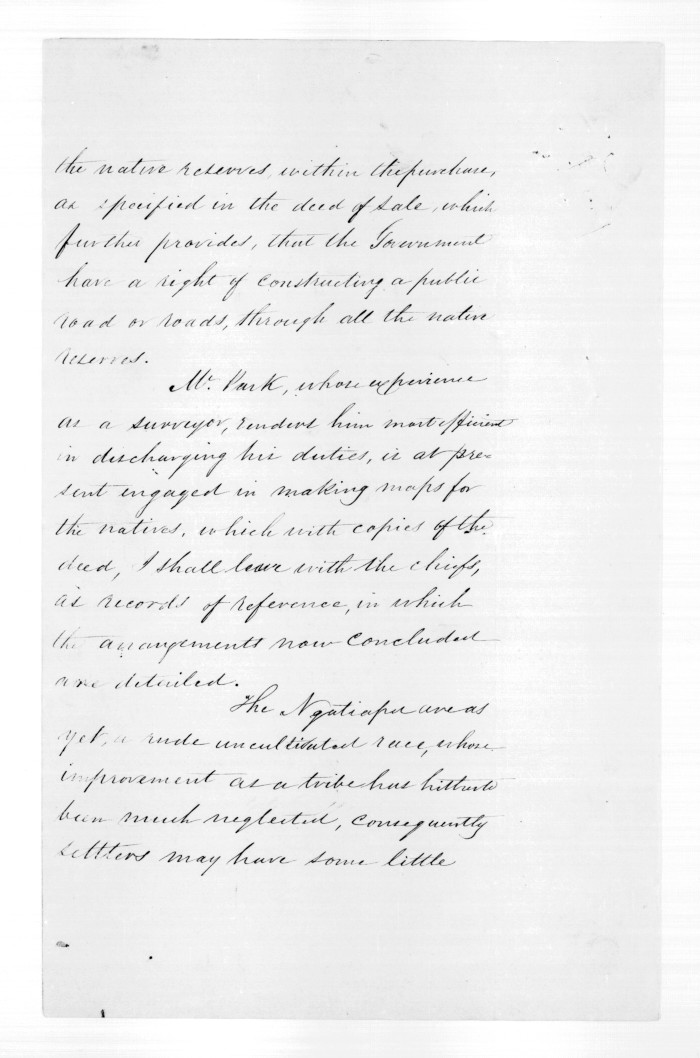 the native reserves, within the purchase,
as specified in the deed of sale, which
further provides, that the Government
have a right of constructing a public
road or roads, through all the native
reserves.
Mr. Park, whose experience
as a surveyor, renders him most efficient
in discharging his duties, is at pre=
sent engaged in making maps for
the natives, which with copies of the
deed, I shall leave with the chiefs,
as records of reference, in which
the arrangements now concluded
are detailed.
The Ngatiapa are as
yet, a rude uncultivated race, whose
improvement as a tribe has hitherto
been much neglected, consequently
settlers may have some little